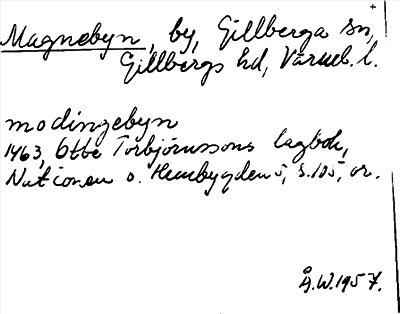 Magnebyn, by, Gillberga sn,
Gillbergs hd, Värml. l.
modingebyn
1463, Otte Torbjörnssons lagbok,
Nationen o. Hembygden 5, s. 105, or.
Å.W. 1957.